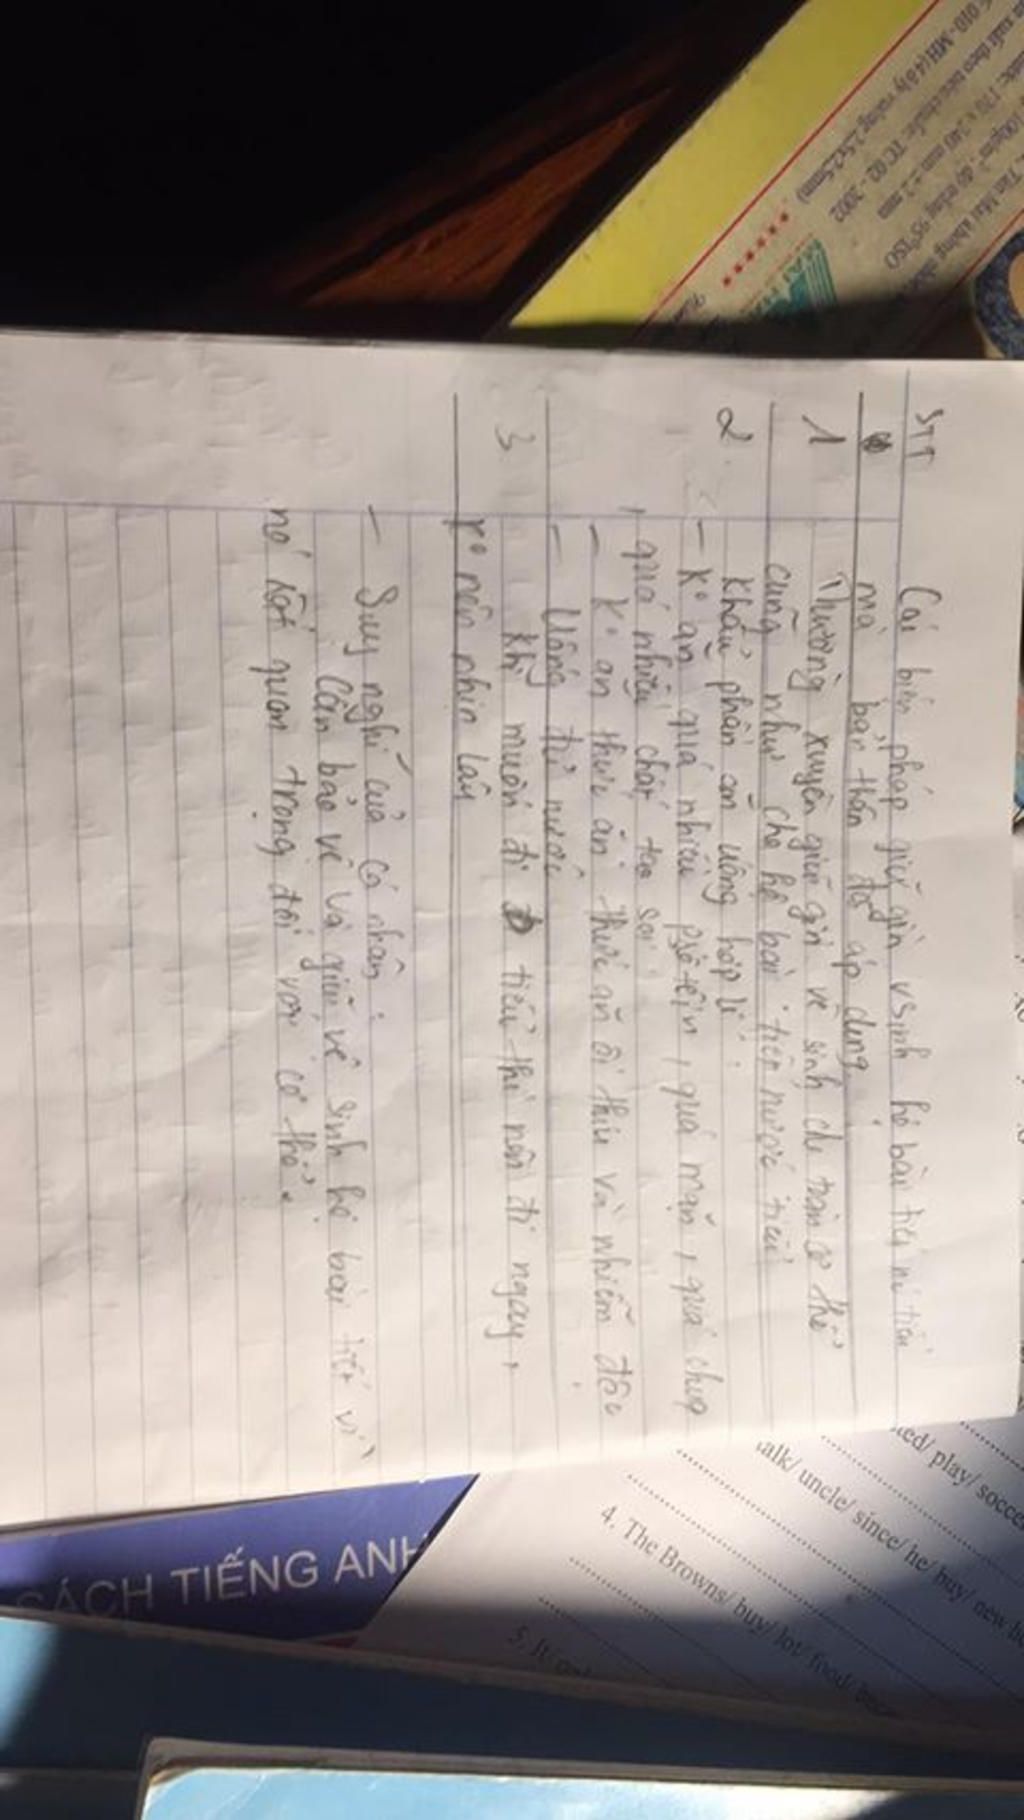 STT Các biện pháp giữ gìn vsinh hệ bài tiết nc tiểu
mà bản thân đã áp dụng
1 Thường xuyên giữ gìn vệ sinh cho toàn cơ thể
cũng như cho hệ bài tiết nước tiểu
2 Khẩu phần ăn uống hợp lí:
- Ko ăn quá nhiều prôtêin, quá mặn, quá chua
, quá nhiều chất tạo sỏi
- Ko ăn thức ăn thức ăn ôi thiu và nhiễm độc
- Uống đủ nước
3 khi muốn đi tiểu thì nên đi ngay,
ko nên nhịn lâu
- Suy nghĩ của cá nhân:
Cần bảo vệ và giữ vệ sinh hệ bài tiết vì
nó rất quan trọng đối với cơ thể.
010 - MH (4 ô ly vuông 2,5x2,5mm)
170 x 240 mm ± 2 mm
TC 02 - 2002
độ trắng 95°ISO
SÁCH TIẾNG ANH
play/ soccer
talk/ uncle/ since/ he/ buy/ new
4. The Browns/ buy/ lot/ food/
5. It